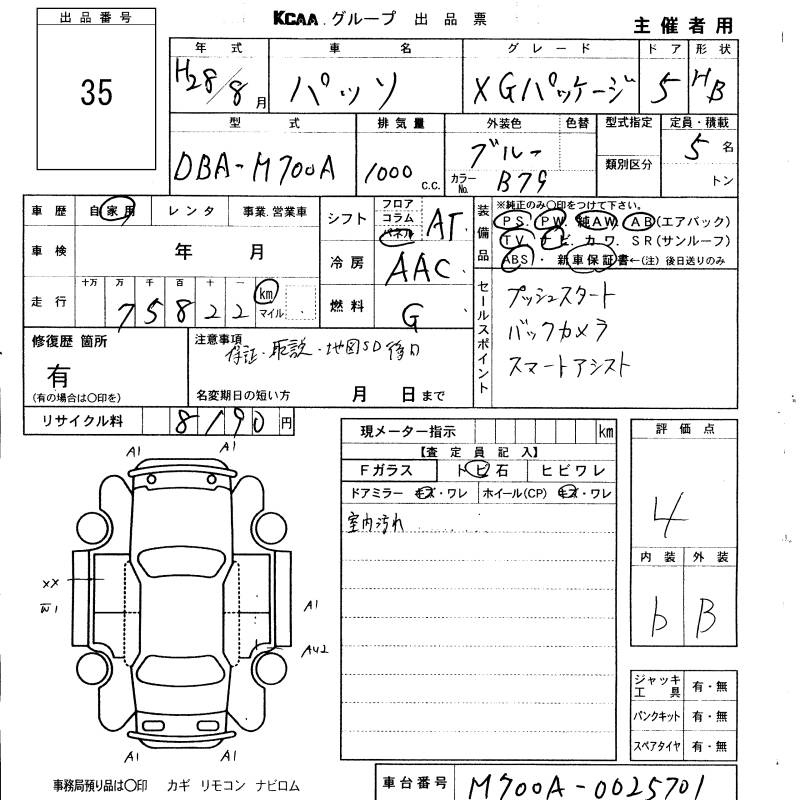 KCAA.グループ 出品票
主催者用
出品番号
35
年式 車名 グレード ドア 形状
H28/8月 パッソ XGパッケージ 5 HB
型式 排気量 外装色 色替 型式指定 定員・積載
DBA-M700A 1000 c.c. ブルー 類別区分 5名
カラーNo. B79 トン
車歴 自家用 レンタ 事業.営業車
シフト フロア コラム パネル AT
装備品 ※純正のみ○印をつけて下さい。
PS. PW. 純AW. AB(エアバック)
TV. ナビ. カワ. SR(サンルーフ)
ABS. 新車保証書←(注)後日送りのみ
車検 年 月
冷房 AAC
走行 十万 万 千 百 十 一
75822 km マイル
燃料 G
セールスポイント
プッシュスタート
バックカメラ
スマートアシスト
修復歴 箇所
有
(有の場合は○印を)
注意事項
保証・取説・地図SD後日
名変期日の短い方 月 日まで
リサイクル料 8190円
現メーター指示 km
【査定員記入】
Fガラス トビ石 ヒビワレ
ドアミラー キズ・ワレ ホイール(CP) キズ・ワレ
室内汚れ
評価点
4
内装 外装
b B
A1 A1
XX
W1
A1
AU2
A1 A1
ジャッキ工具 有・無
パンクキット 有・無
スペアタイヤ 有・無
事務局預り品は○印 カギ リモコン ナビロム
車台番号 M700A-0025701